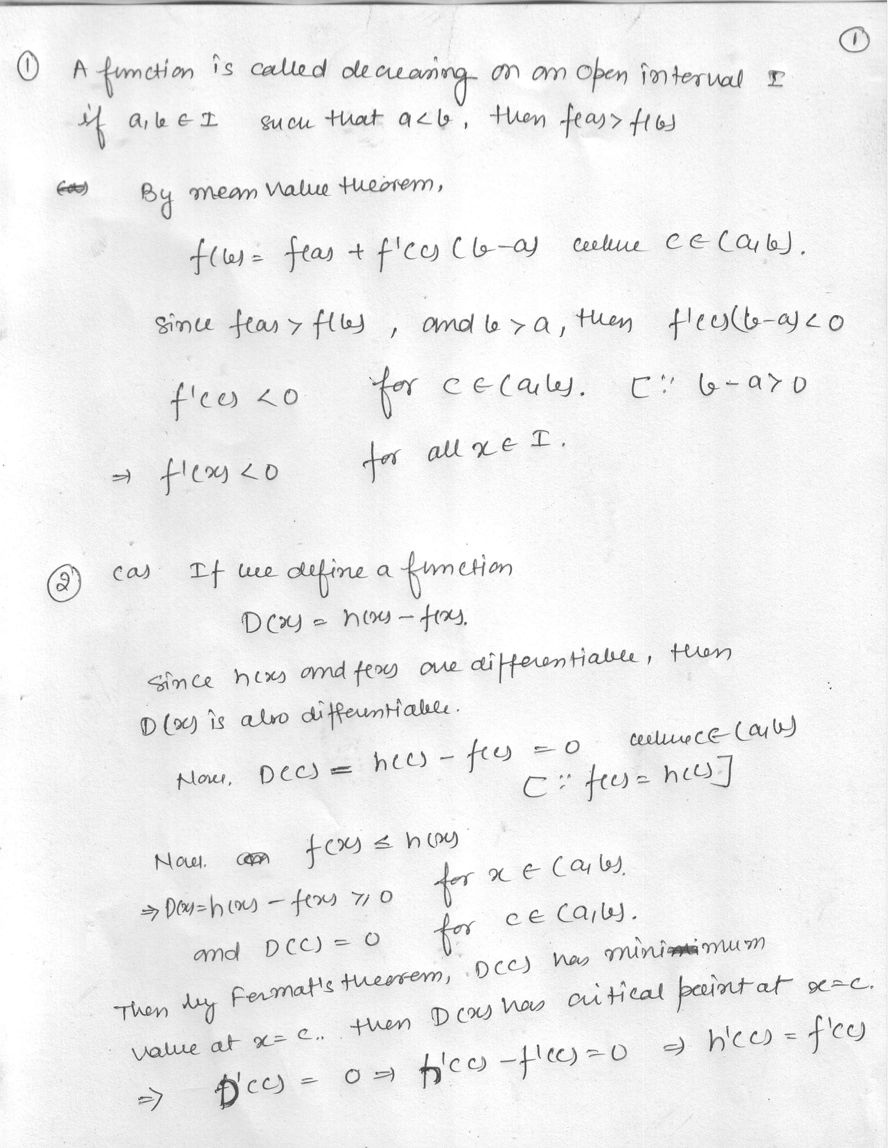 ①
① A function is called decreasing on an open interval I
if a, b ∈ I such that a<b, then f(a)> f(b)
By mean value theorem,
f(b) = f(a) + f'(c) (b-a) where c ∈ (a,b).
Since f(a) > f(b) , and b > a, then f'(c)(b-a) < 0
f'(c) < 0 for c ∈ (a,b). [∵ b-a>0
⇒ f'(x) < 0 for all x ∈ I.
② (a) If we define a function
D(x) = h(x) - f(x).
Since h(x) and f(x) are differentiable, then
D(x) is also differentiable.
Now, D(c) = h(c) - f(c) = 0 where c ∈ (a,b)
[∵ f(c) = h(c)]
Now. f(x) ≤ h(x)
⇒ D(x)=h(x) - f(x) ≥ 0 for x ∈ (a,b).
and D(c) = 0 for c ∈ (a,b).
Then by Fermat's theorem, D(c) has minimum
value at x = c.. then D(x) has critical point at x=c.
⇒ D'(c) = 0 ⇒ h'(c) - f'(c) = 0 ⇒ h'(c) = f'(c)